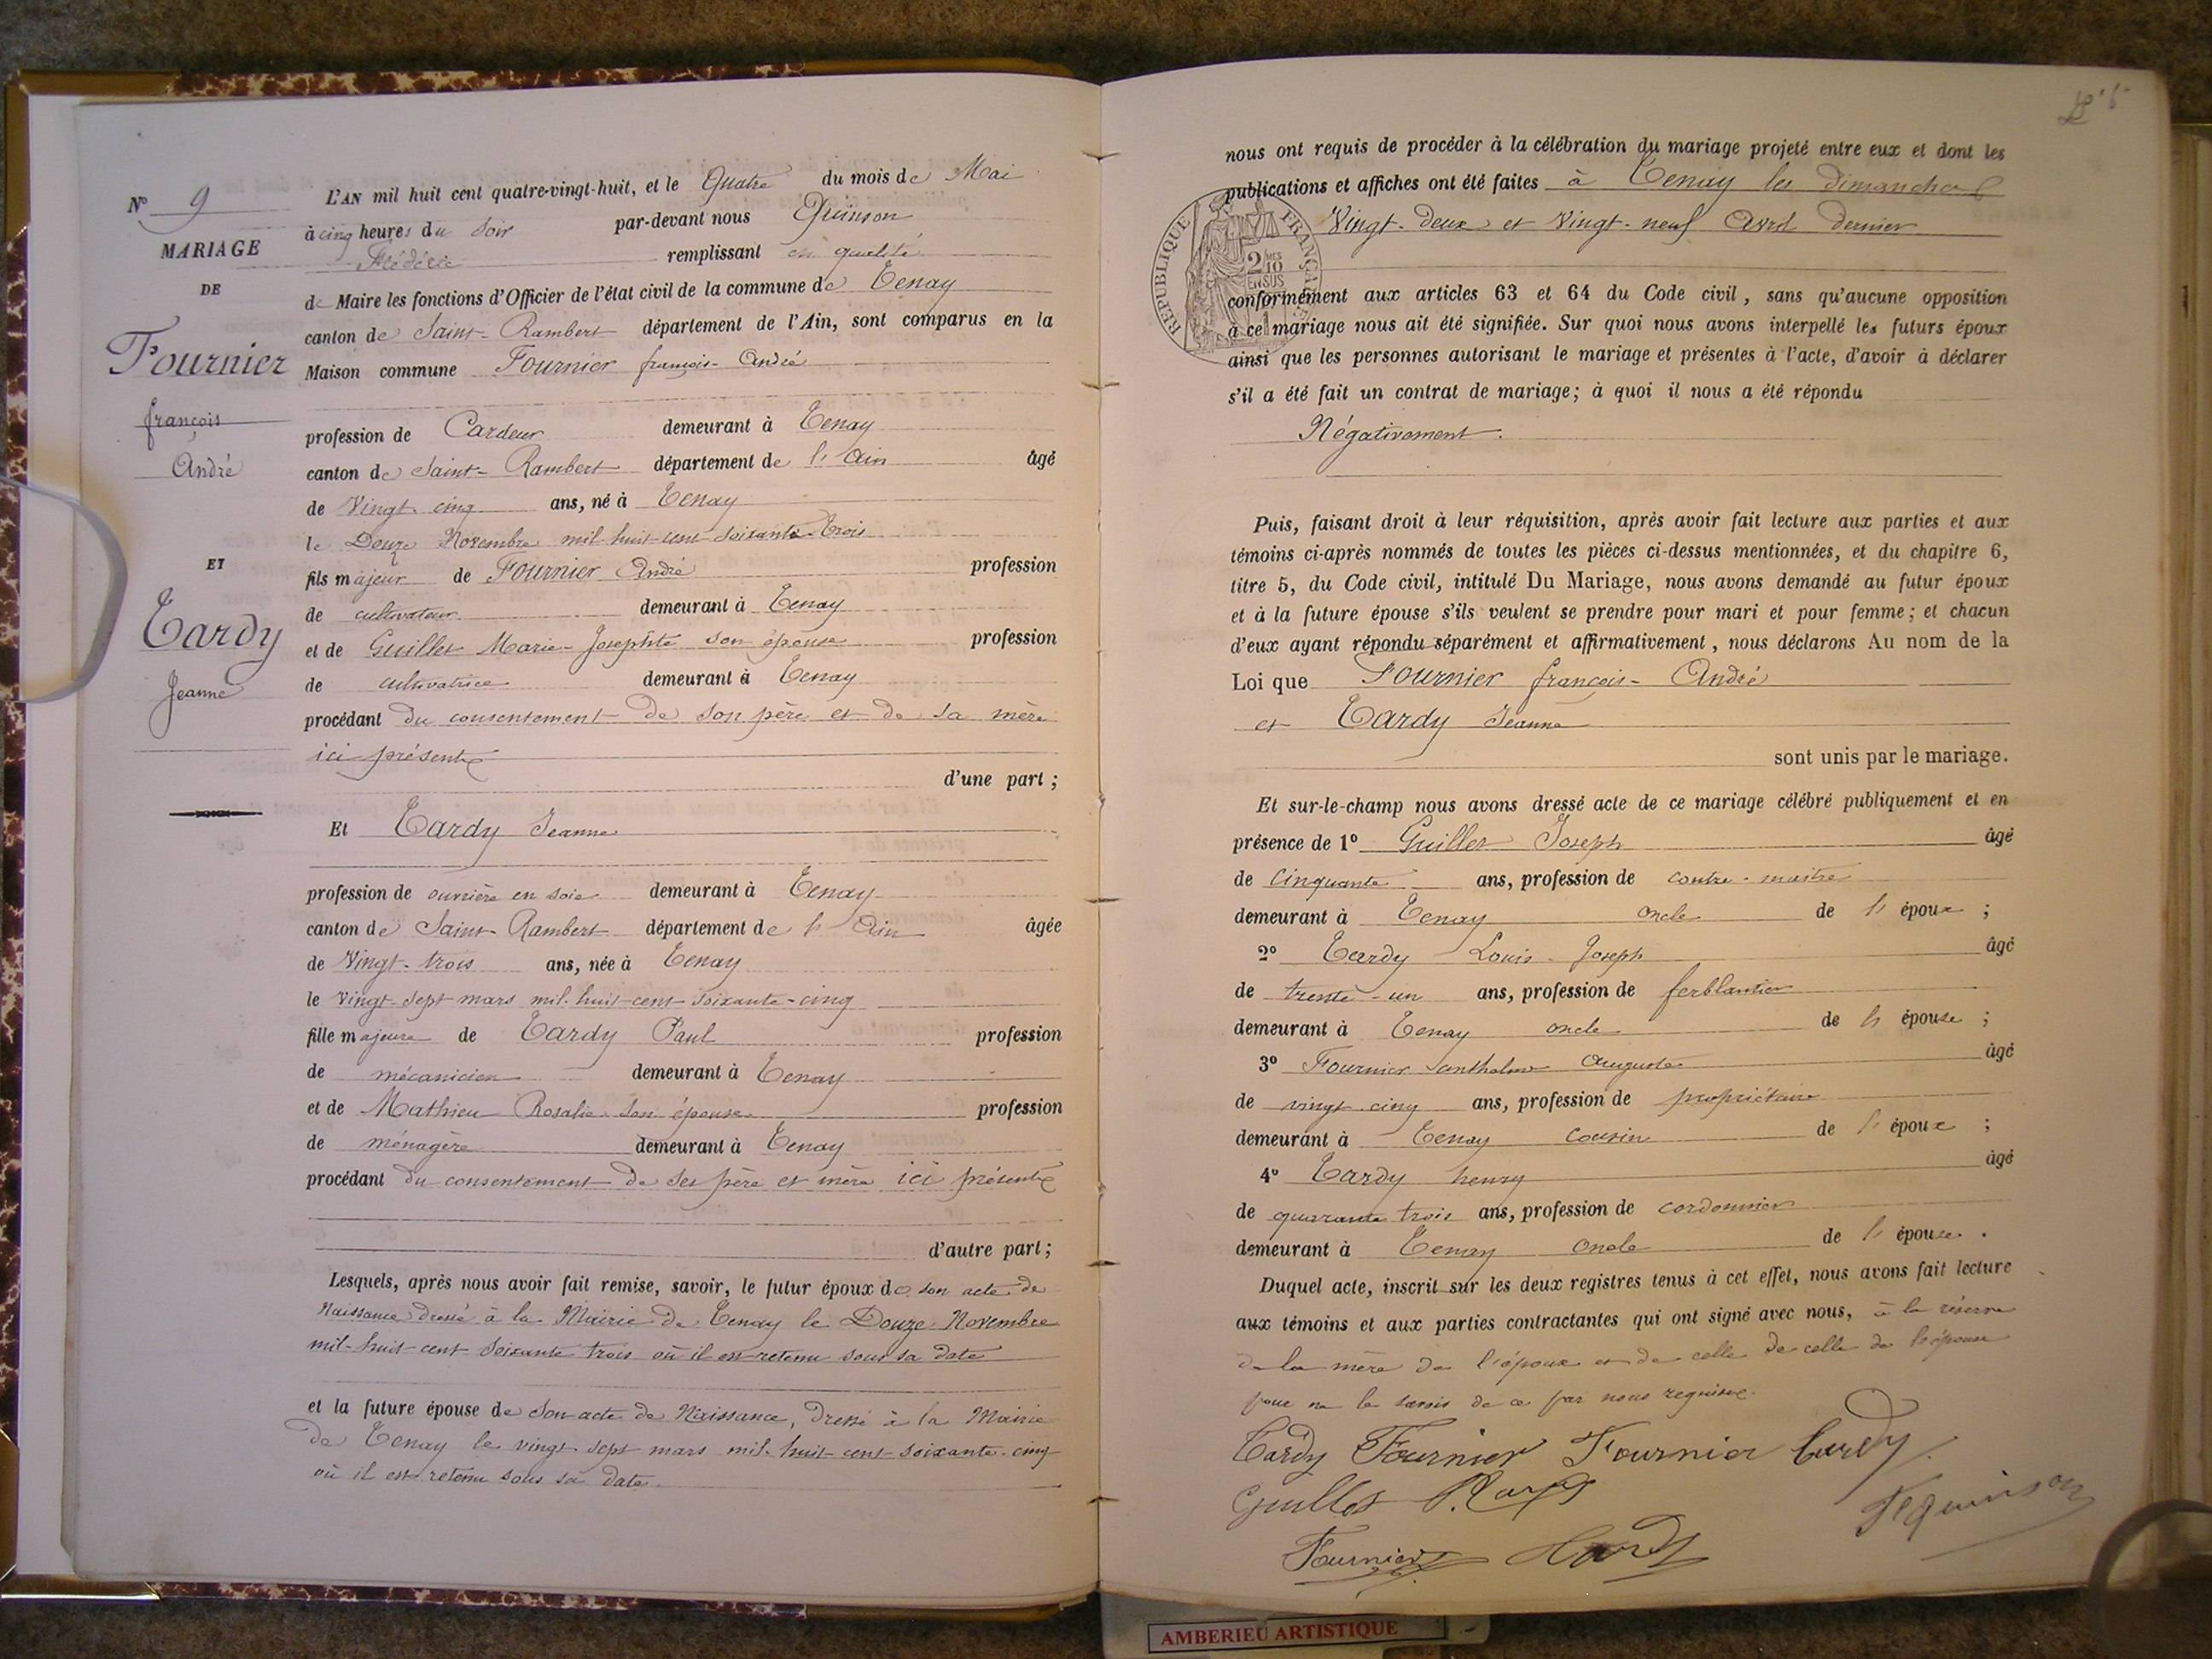 N° 9
MARIAGE
DE
Fournier
françois
André
ET
Tardy
Jeanne
L'AN mil huit cent quatre-vingt-huit, et le Quatre du mois de Mai
à cinq heures du soir par-devant nous Quinson
Frédéric remplissant en qualité
de Maire les fonctions d'Officier de l'état civil de la commune de Tenay
canton de Saint-Rambert département de l'Ain, sont comparus en la
Maison commune Fournier françois-André
profession de Cardeur demeurant à Tenay
canton de Saint-Rambert département de l'Ain âgé
de Vingt-cinq ans, né à Tenay
le Douze Novembre mil-huit-cent-soixante-trois
fils majeur de Fournier André profession
de cultivateur demeurant à Tenay
et de Guillet Marie-Josephte son épouse profession
de cultivatrice demeurant à Tenay
procédant du consentement de son père et de sa mère
ici présents
d'une part ;
Et Tardy Jeanne
profession de ouvrière en soie demeurant à Tenay
canton de Saint-Rambert département de l'Ain âgée
de Vingt-trois ans, née à Tenay
le Vingt-sept mars mil-huit-cent-soixante-cinq
fille majeure de Tardy Paul profession
de mécanicien demeurant à Tenay
et de Mathieu Rosalie son épouse profession
de ménagère demeurant à Tenay
procédant du consentement de ses père et mère ici présents
d'autre part ;
Lesquels, après nous avoir fait remise, savoir, le futur époux de son acte de
Naissance dressé à la Mairie de Tenay le Douze Novembre
mil-huit-cent soixante trois où il est retenu sous sa date
et la future épouse de son acte de Naissance, dressé à la Mairie
de Tenay le vingt sept mars mil-huit-cent-soixante-cinq
où il est retenu sous sa date.
nous ont requis de procéder à la célébration du mariage projeté entre eux et dont les
publications et affiches ont été faites à Tenay les dimanches
Vingt-deux et Vingt-neuf Avril dernier
RÉPUBLIQUE FRANÇAISE
2/10 MES EN SUS
conformément aux articles 63 et 64 du Code civil, sans qu'aucune opposition
à ce mariage nous ait été signifiée. Sur quoi nous avons interpellé les futurs époux
ainsi que les personnes autorisant le mariage et présentes à l'acte, d'avoir à déclarer
s'il a été fait un contrat de mariage ; à quoi il nous a été répondu
Négativement.
Puis, faisant droit à leur réquisition, après avoir fait lecture aux parties et aux
témoins ci-après nommés de toutes les pièces ci-dessus mentionnées, et du chapitre 6,
titre 5, du Code civil, intitulé Du Mariage, nous avons demandé au futur époux
et à la future épouse s'ils veulent se prendre pour mari et pour femme ; et chacun
d'eux ayant répondu séparément et affirmativement, nous déclarons Au nom de la
Loi que Fournier françois-André
et Tardy Jeanne
sont unis par le mariage.
Et sur-le-champ nous avons dressé acte de ce mariage célébré publiquement et en
présence de 1° Guillet Joseph âgé
de Cinquante ans, profession de contre-maitre
demeurant à Tenay oncle de l'époux ;
2° Tardy Louis-Joseph âgé
de trente-un ans, profession de ferblantier
demeurant à Tenay oncle de l'épouse ;
3° Fournier Anthelme Auguste âgé
de vingt cinq ans, profession de propriétaire
demeurant à Tenay cousin de l'époux ;
4° Tardy henry âgé
de quarante trois ans, profession de cordonnier
demeurant à Tenay oncle de l'épouse.
Duquel acte, inscrit sur les deux registres tenus à cet effet, nous avons fait lecture
aux témoins et aux parties contractantes qui ont signé avec nous, à la réserve
de la mère de l'époux et de celle de celle de l'épouse
pour ne le savoir de ce par nous requises.
Tardy Fournier Fournier Tardy
Guillet
Fquinson
Fournier Tardy
AMBERIEU ARTISTIQUE